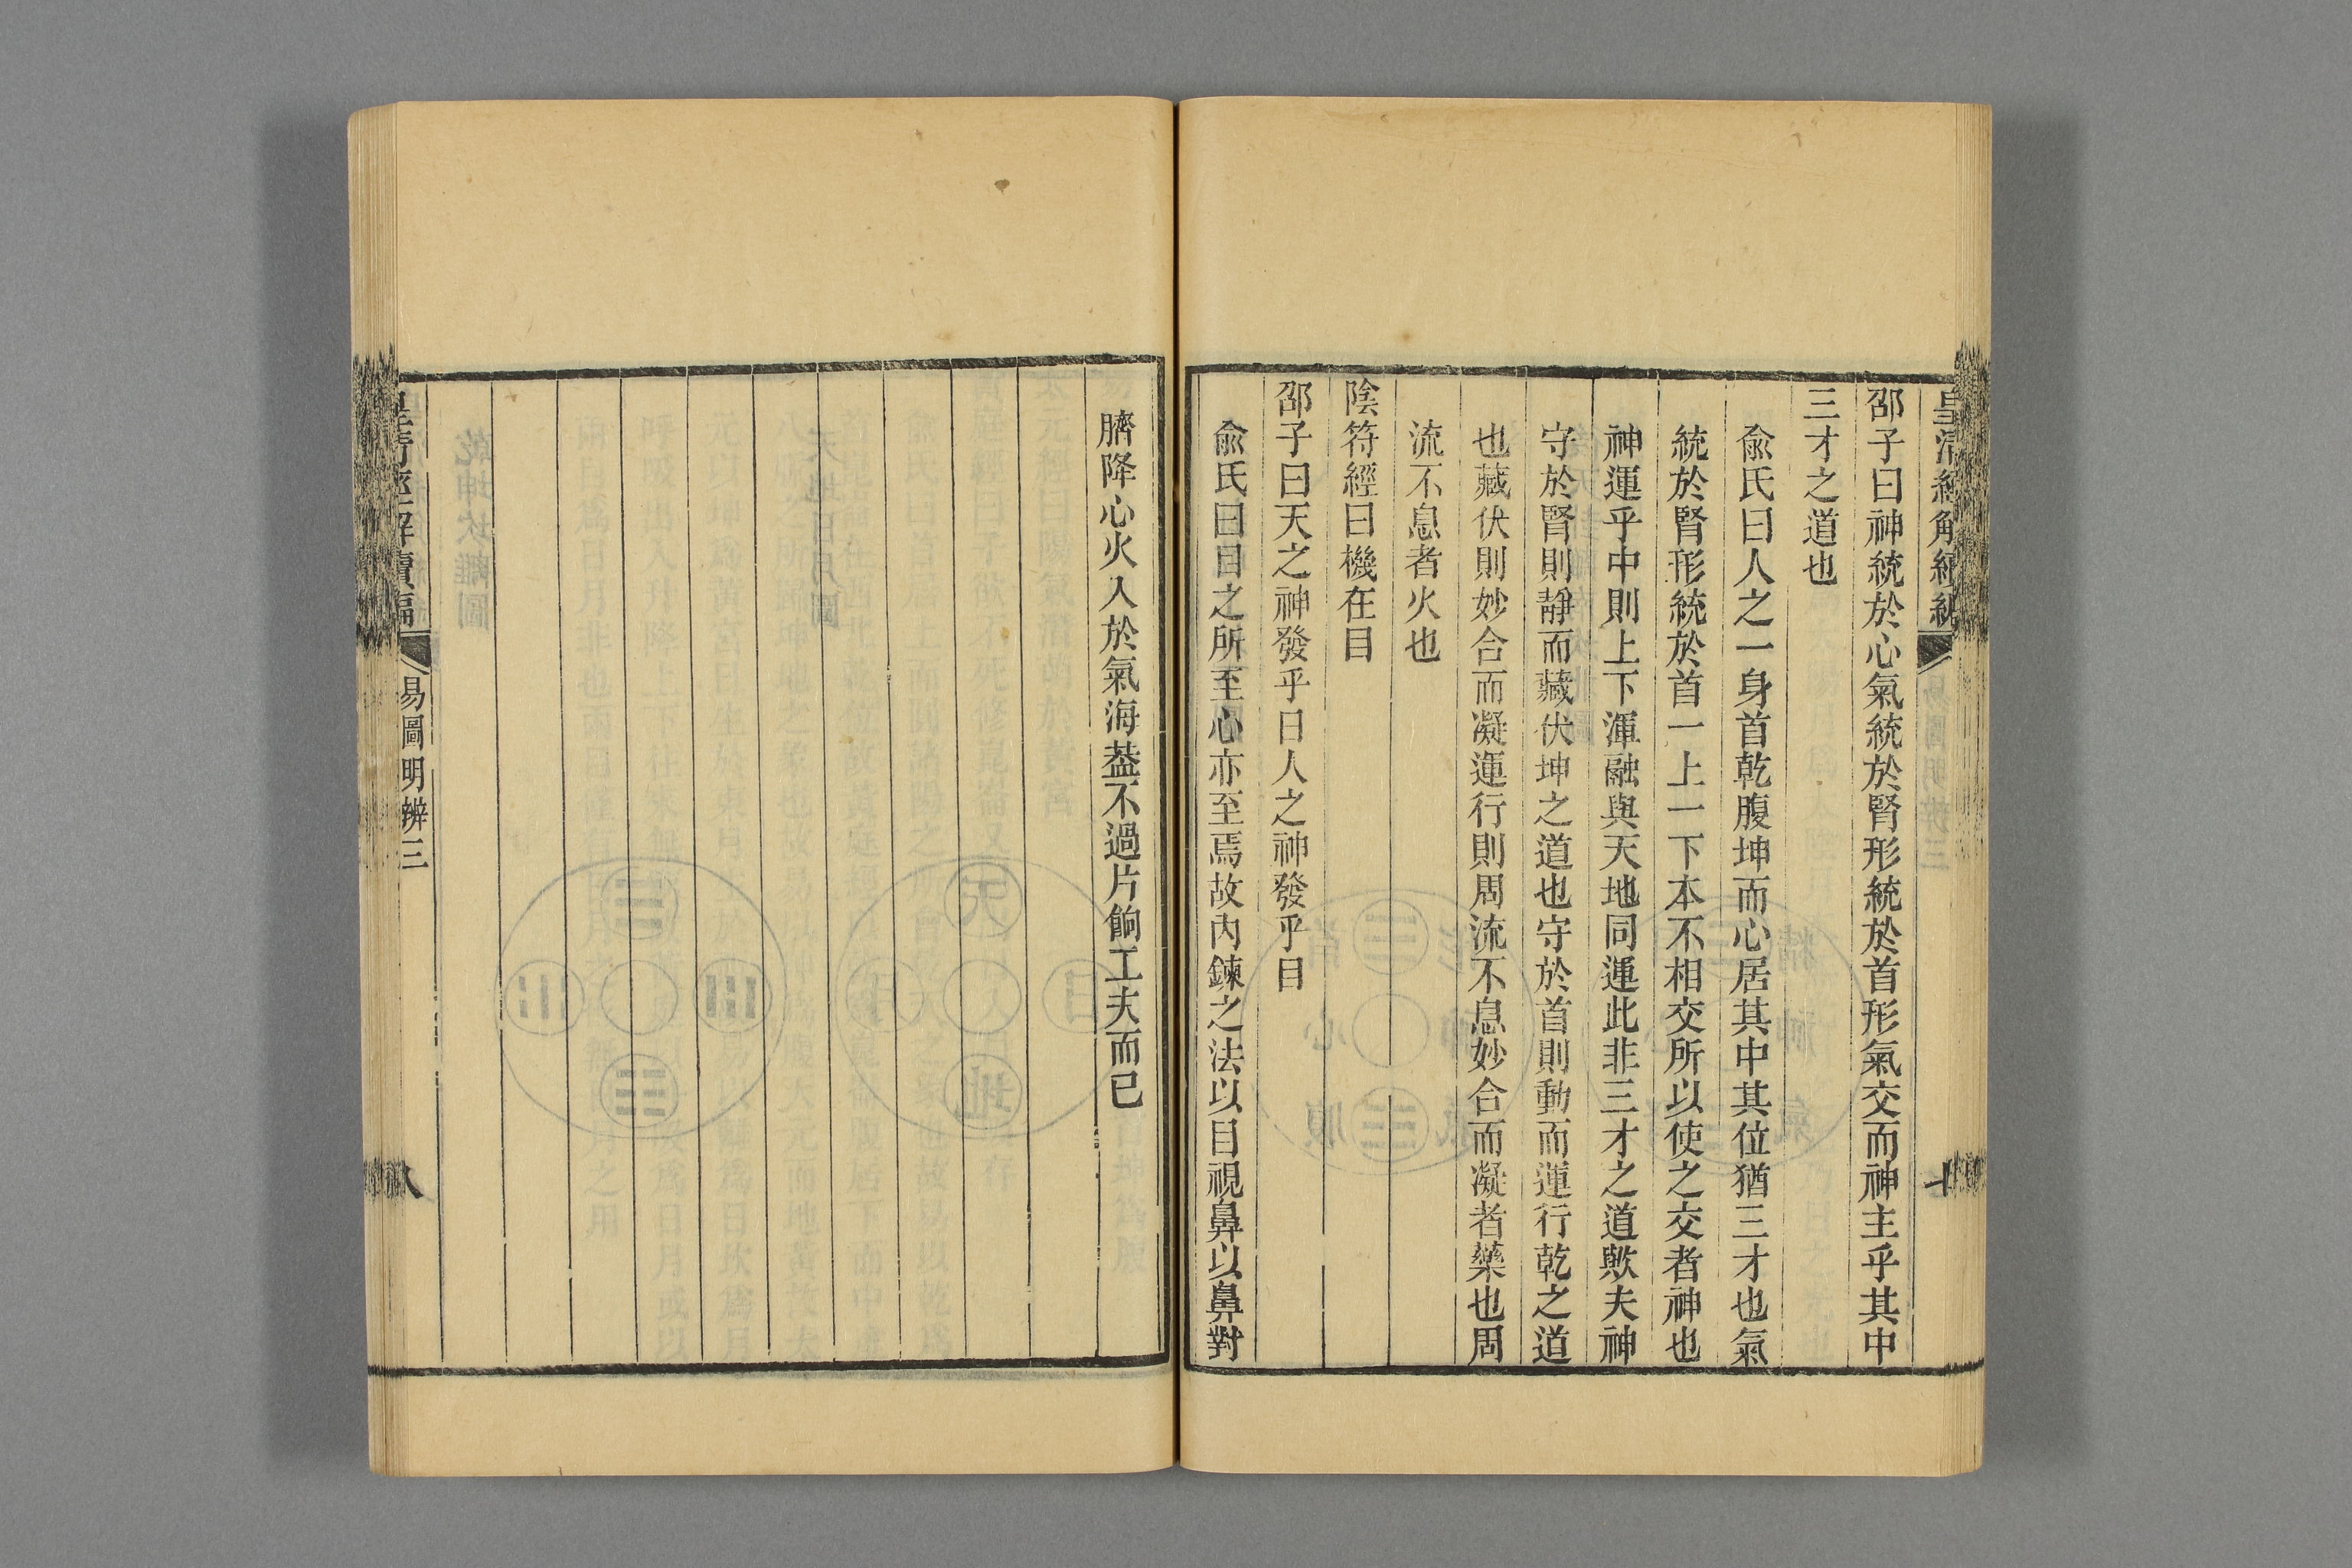 皇清經解續編
邵子曰神統於心氣統於腎形統於首形氣交而神主乎其中
三才之道也
兪氏曰人之一身首乾腹坤而心居其中其位猶三才也氣
統於腎形統於首一上一下本不相交所以使之交者神也
神運乎中則上下渾融與天地同運此非三才之道歟夫神
守於腎則靜而藏伏坤之道也守於首則動而運行乾之道
也藏伏則妙合而凝運行則周流不息妙合而凝者藥也周
流不息者火也
陰符經曰機在目
邵子曰天之神發乎日人之神發乎目
兪氏曰目之所至心亦至焉故內鍊之法以目視鼻以鼻對
臍降心火入於氣海葢不過片餉工夫而已
皇清經解續編
易圖明辨三
八